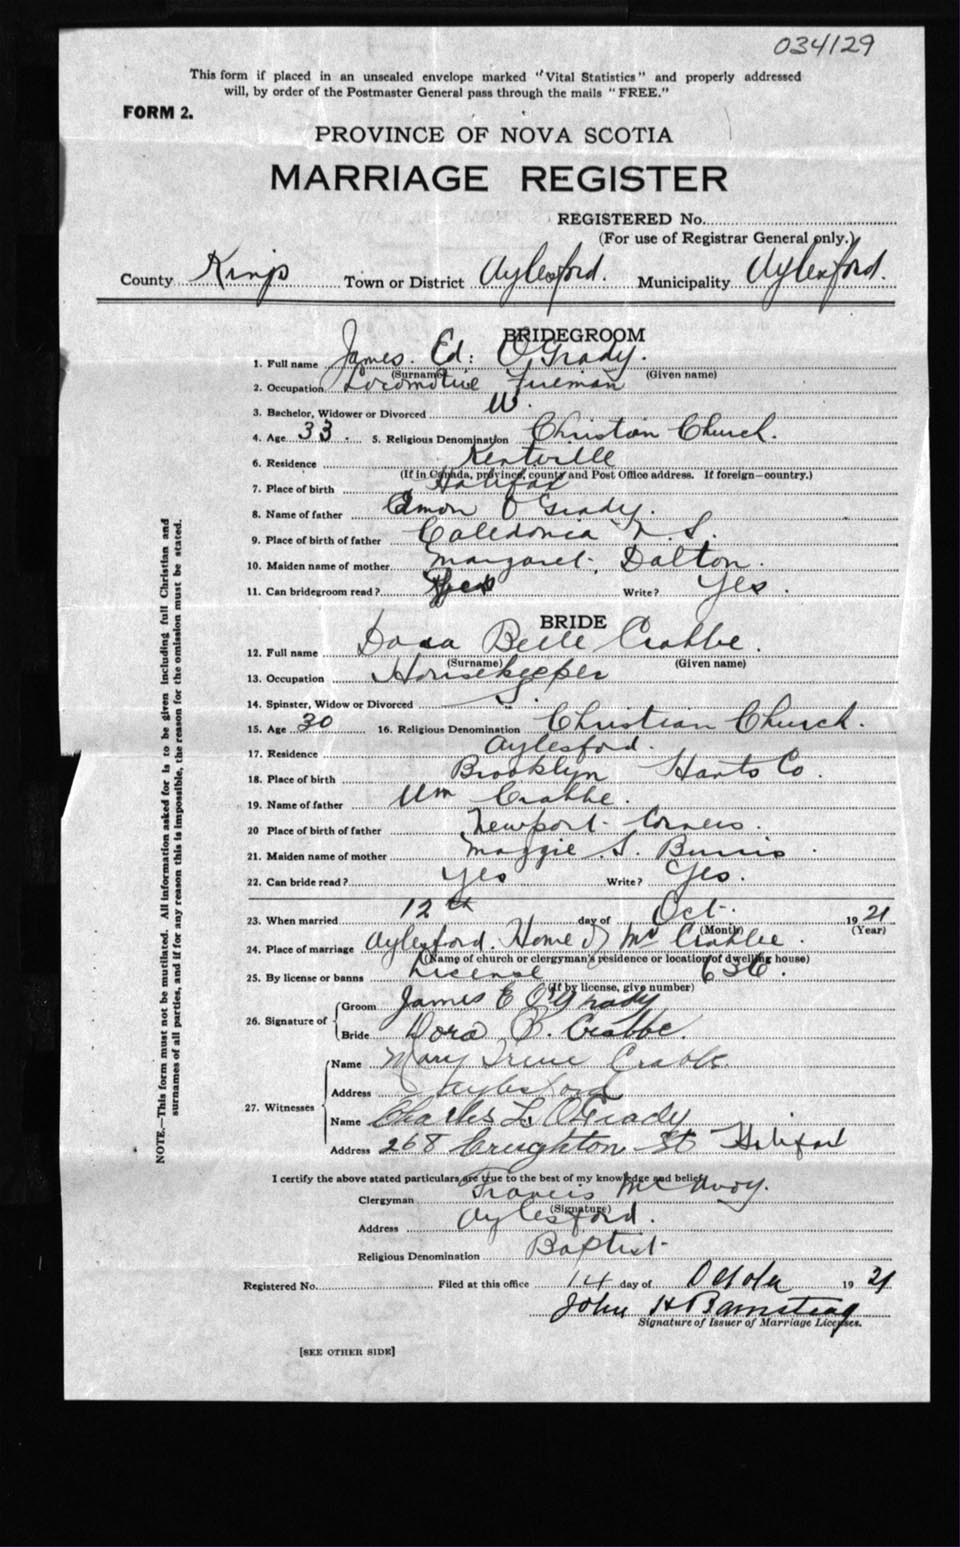 034129
This form if placed in an unsealed envelope marked "Vital Statistics" and properly addressed
will, by order of the Postmaster General pass through the mails "FREE."
FORM 2.
PROVINCE OF NOVA SCOTIA
MARRIAGE REGISTER
REGISTERED No.
(For use of Registrar General only.)
County Kings Town or District Aylesford. Municipality Aylesford.
BRIDEGROOM
1. Full name James. Ed: O'Grady.
(Surname) (Given name)
2. Occupation Locomotive Fireman
3. Bachelor, Widower or Divorced W.
4. Age 33. 5. Religious Denomination Christian Church.
6. Residence Kentville
(If in Canada, province, county and Post Office address. If foreign—country.)
7. Place of birth Halifax
8. Name of father O'Grady.
9. Place of birth of father Caledonia N. S.
10. Maiden name of mother Margaret. Dalton.
11. Can bridegroom read? Yes Write? Yes.
BRIDE
12. Full name Dora Belle Crabbe.
(Surname) (Given name)
13. Occupation Housekeeper
14. Spinster, Widow or Divorced S.
15. Age 30 16. Religious Denomination Christian Church.
17. Residence Aylesford.
18. Place of birth Brooklyn Hants Co.
19. Name of father Wm Crabbe.
20 Place of birth of father Newport Corners.
21. Maiden name of mother Maggie. S. Burris.
22. Can bride read? Yes Write? Yes.
23. When married 12th day of Oct. 1921
(Month) (Year)
24. Place of marriage Aylesford. Home of Mr Crabbe.
(Name of church or clergyman's residence or location of dwelling house)
25. By license or banns License 636.
(If by license, give number)
26. Signature of Groom James E O'Grady
Bride Dora B. Crabbe.
27. Witnesses
Name Mary Irene Crabbe
Address Aylesford
Name Charles L. O'Grady
Address 268 Creighton St Halifax
I certify the above stated particulars are true to the best of my knowledge and belief.
Clergyman Francis McAvoy.
(Signature)
Address Aylesford.
Religious Denomination Baptist
Registered No. Filed at this office 14 day of 1921
John H Barnstead
Signature of Issuer of Marriage Licenses.
[SEE OTHER SIDE]
NOTE.—This form must not be mutilated. All information asked for is to be given including full Christian and
surnames of all parties, and if for any reason this is impossible, the reason for the omission must be stated.